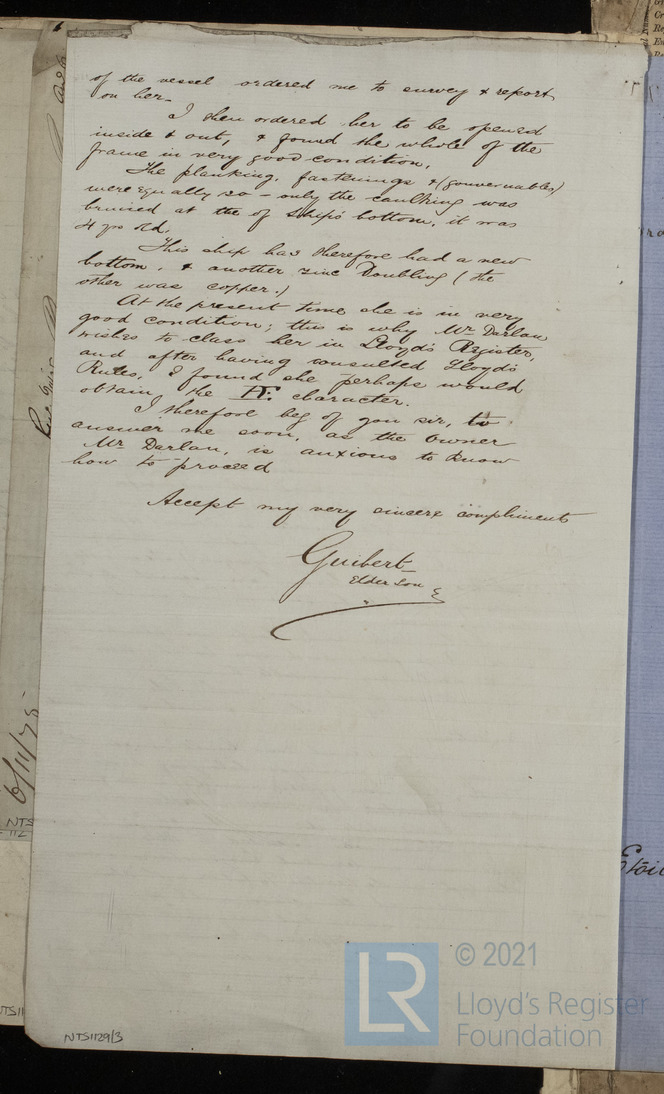 of the vessel ordered me to survey & report
on her.
I then ordered her to be opened
inside & out, & found the whole of the
frame in very good condition,
The planking, fastenings & (gouvernables)
were equally so - only the caulking was
bruised at the of Ships bottom, it was
4 yrs old.
This ship has therefore had a new
bottom, & another zinc Doubling (the
other was copper.)
At the present time she is in very
good condition; this is why Mr Darlan
wishes to class her in Lloyd's Register,
and after having consulted Lloyd's
Rules, I found she perhaps would
obtain the character.
I therefore beg of you sir, to
answer me soon, as the owner
Mr Darlan, is anxious to know
how to proceed
Accept my very sincere compliments
Guibert
Elder Son
6/11/75
NTS
NTS11
NTS1129/3
© 2021
LR
Lloyd's Register
Foundation